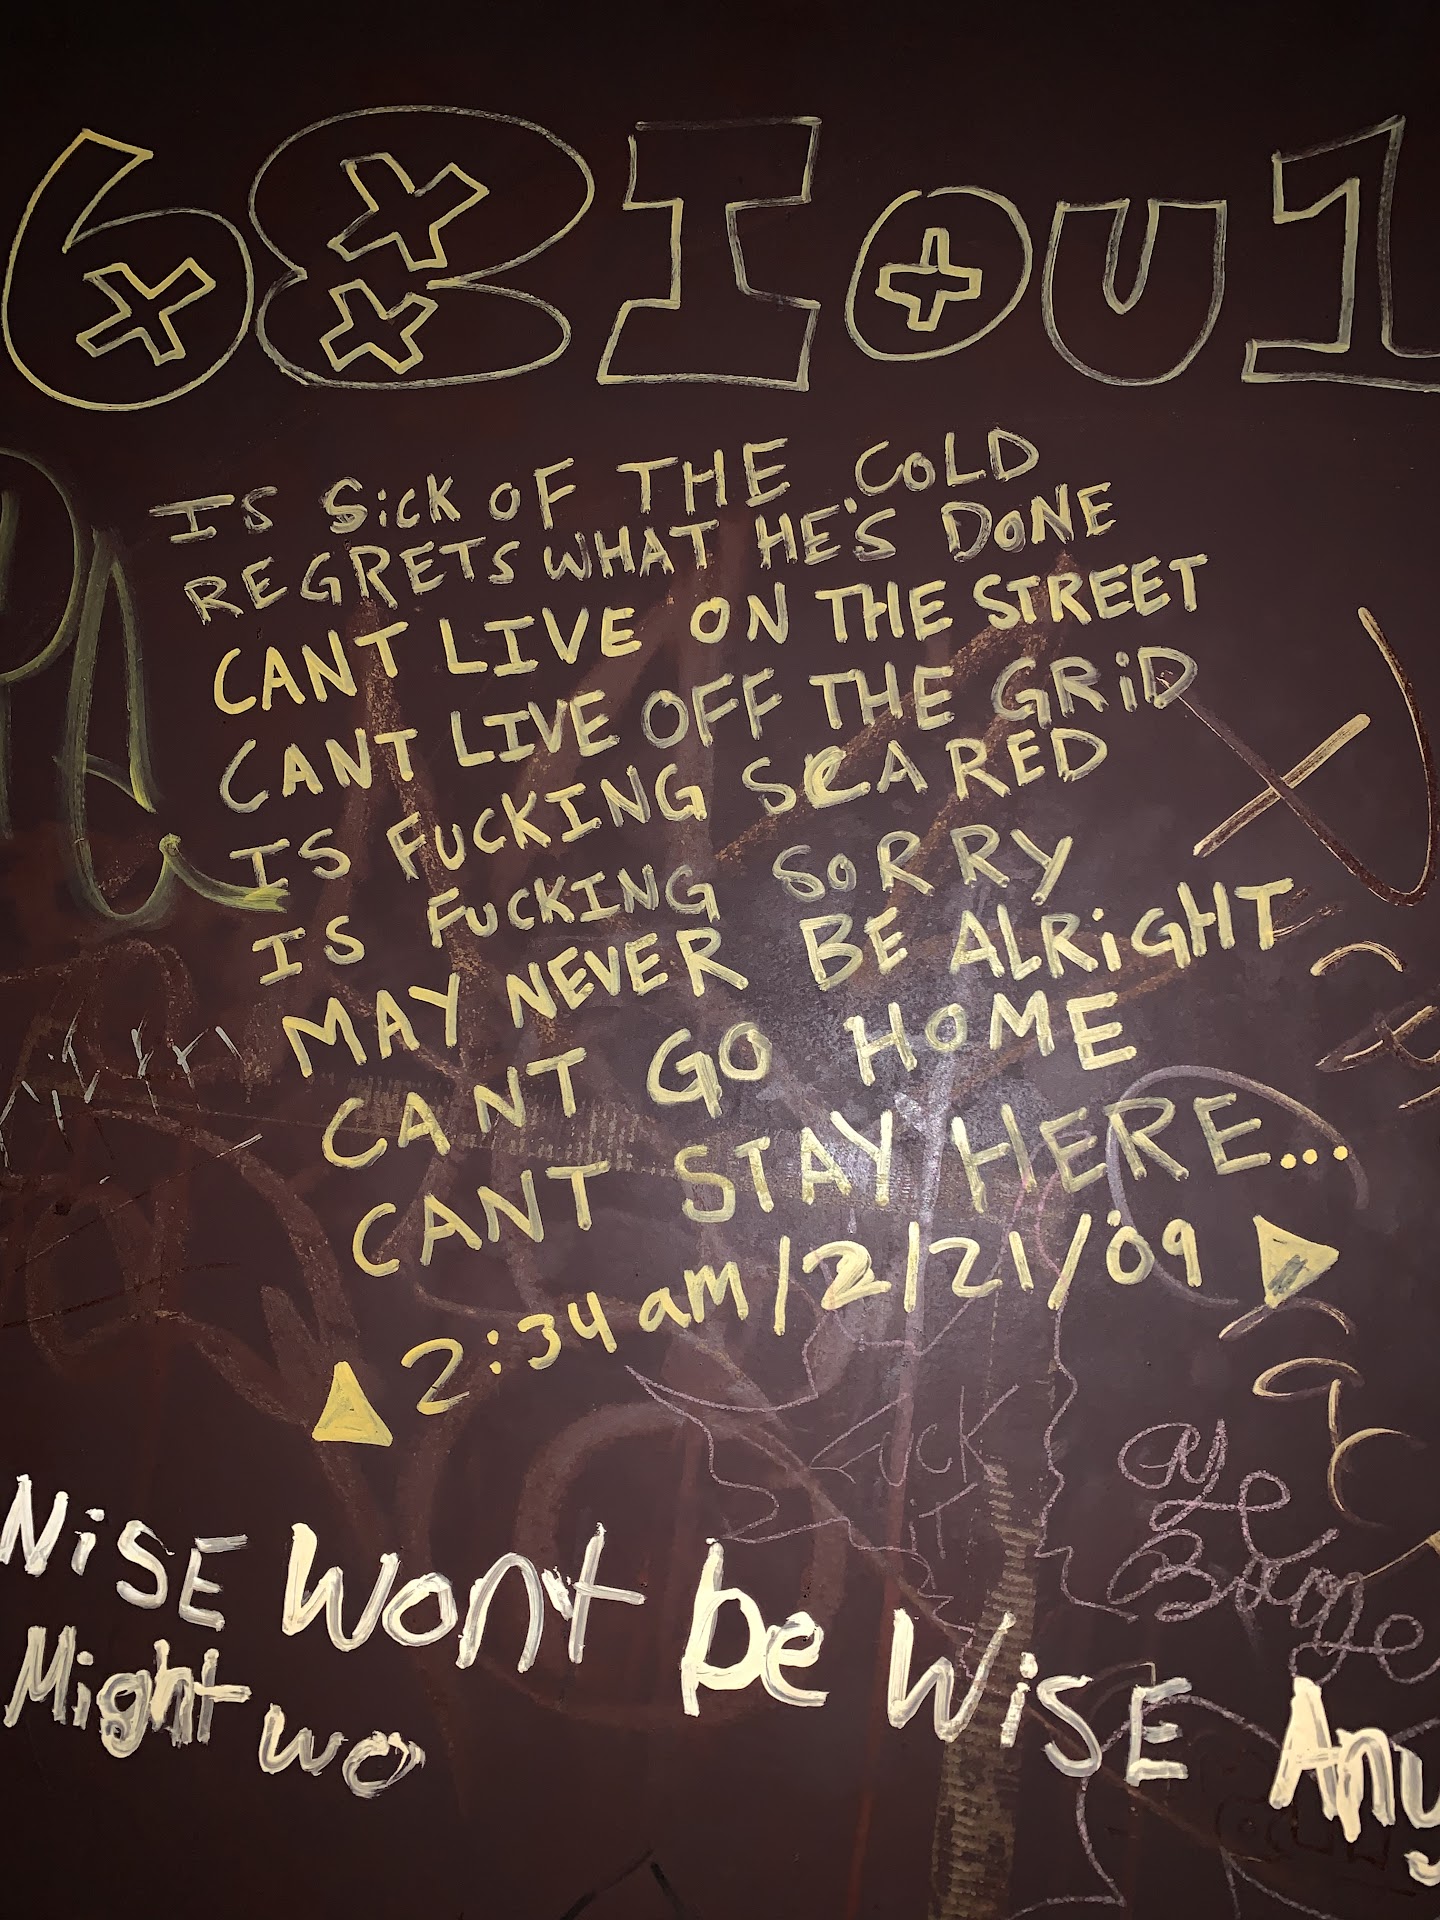 68Iou1
IS SiCK OF THE COLD
REGRETS WHAT HE'S DONE
CANT LIVE ON THE STREET
CANT LIVE OFF THE GRiD
IS FUCKING SCARED
IS FUCKING SORRY
MAY NEVER BE ALRiGHT
CANT GO HOME
CANT STAY HERE...
2:34 am/2/21/09
NiSE Wont be WiSE Any
Might wo